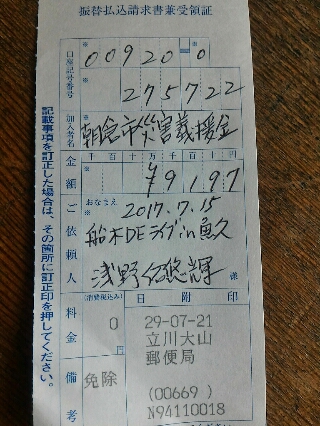 振替払込請求書兼受領証
口座記号番号
※
00920-0
※
275722
加入者名
※
朝倉市災害義援金
金額
千百十万千百十円
※
¥79197
ご依頼人
おなまえ
※
2017.7.15
船木DEライブin魚久
浅野
様
料金
(消費税込み)
0
円
備考
免除
日附印
29-07-21
立川大山
郵便局
(00669 )
N94110018
記載事項を訂正した場合は、その箇所に訂正印を押してください。